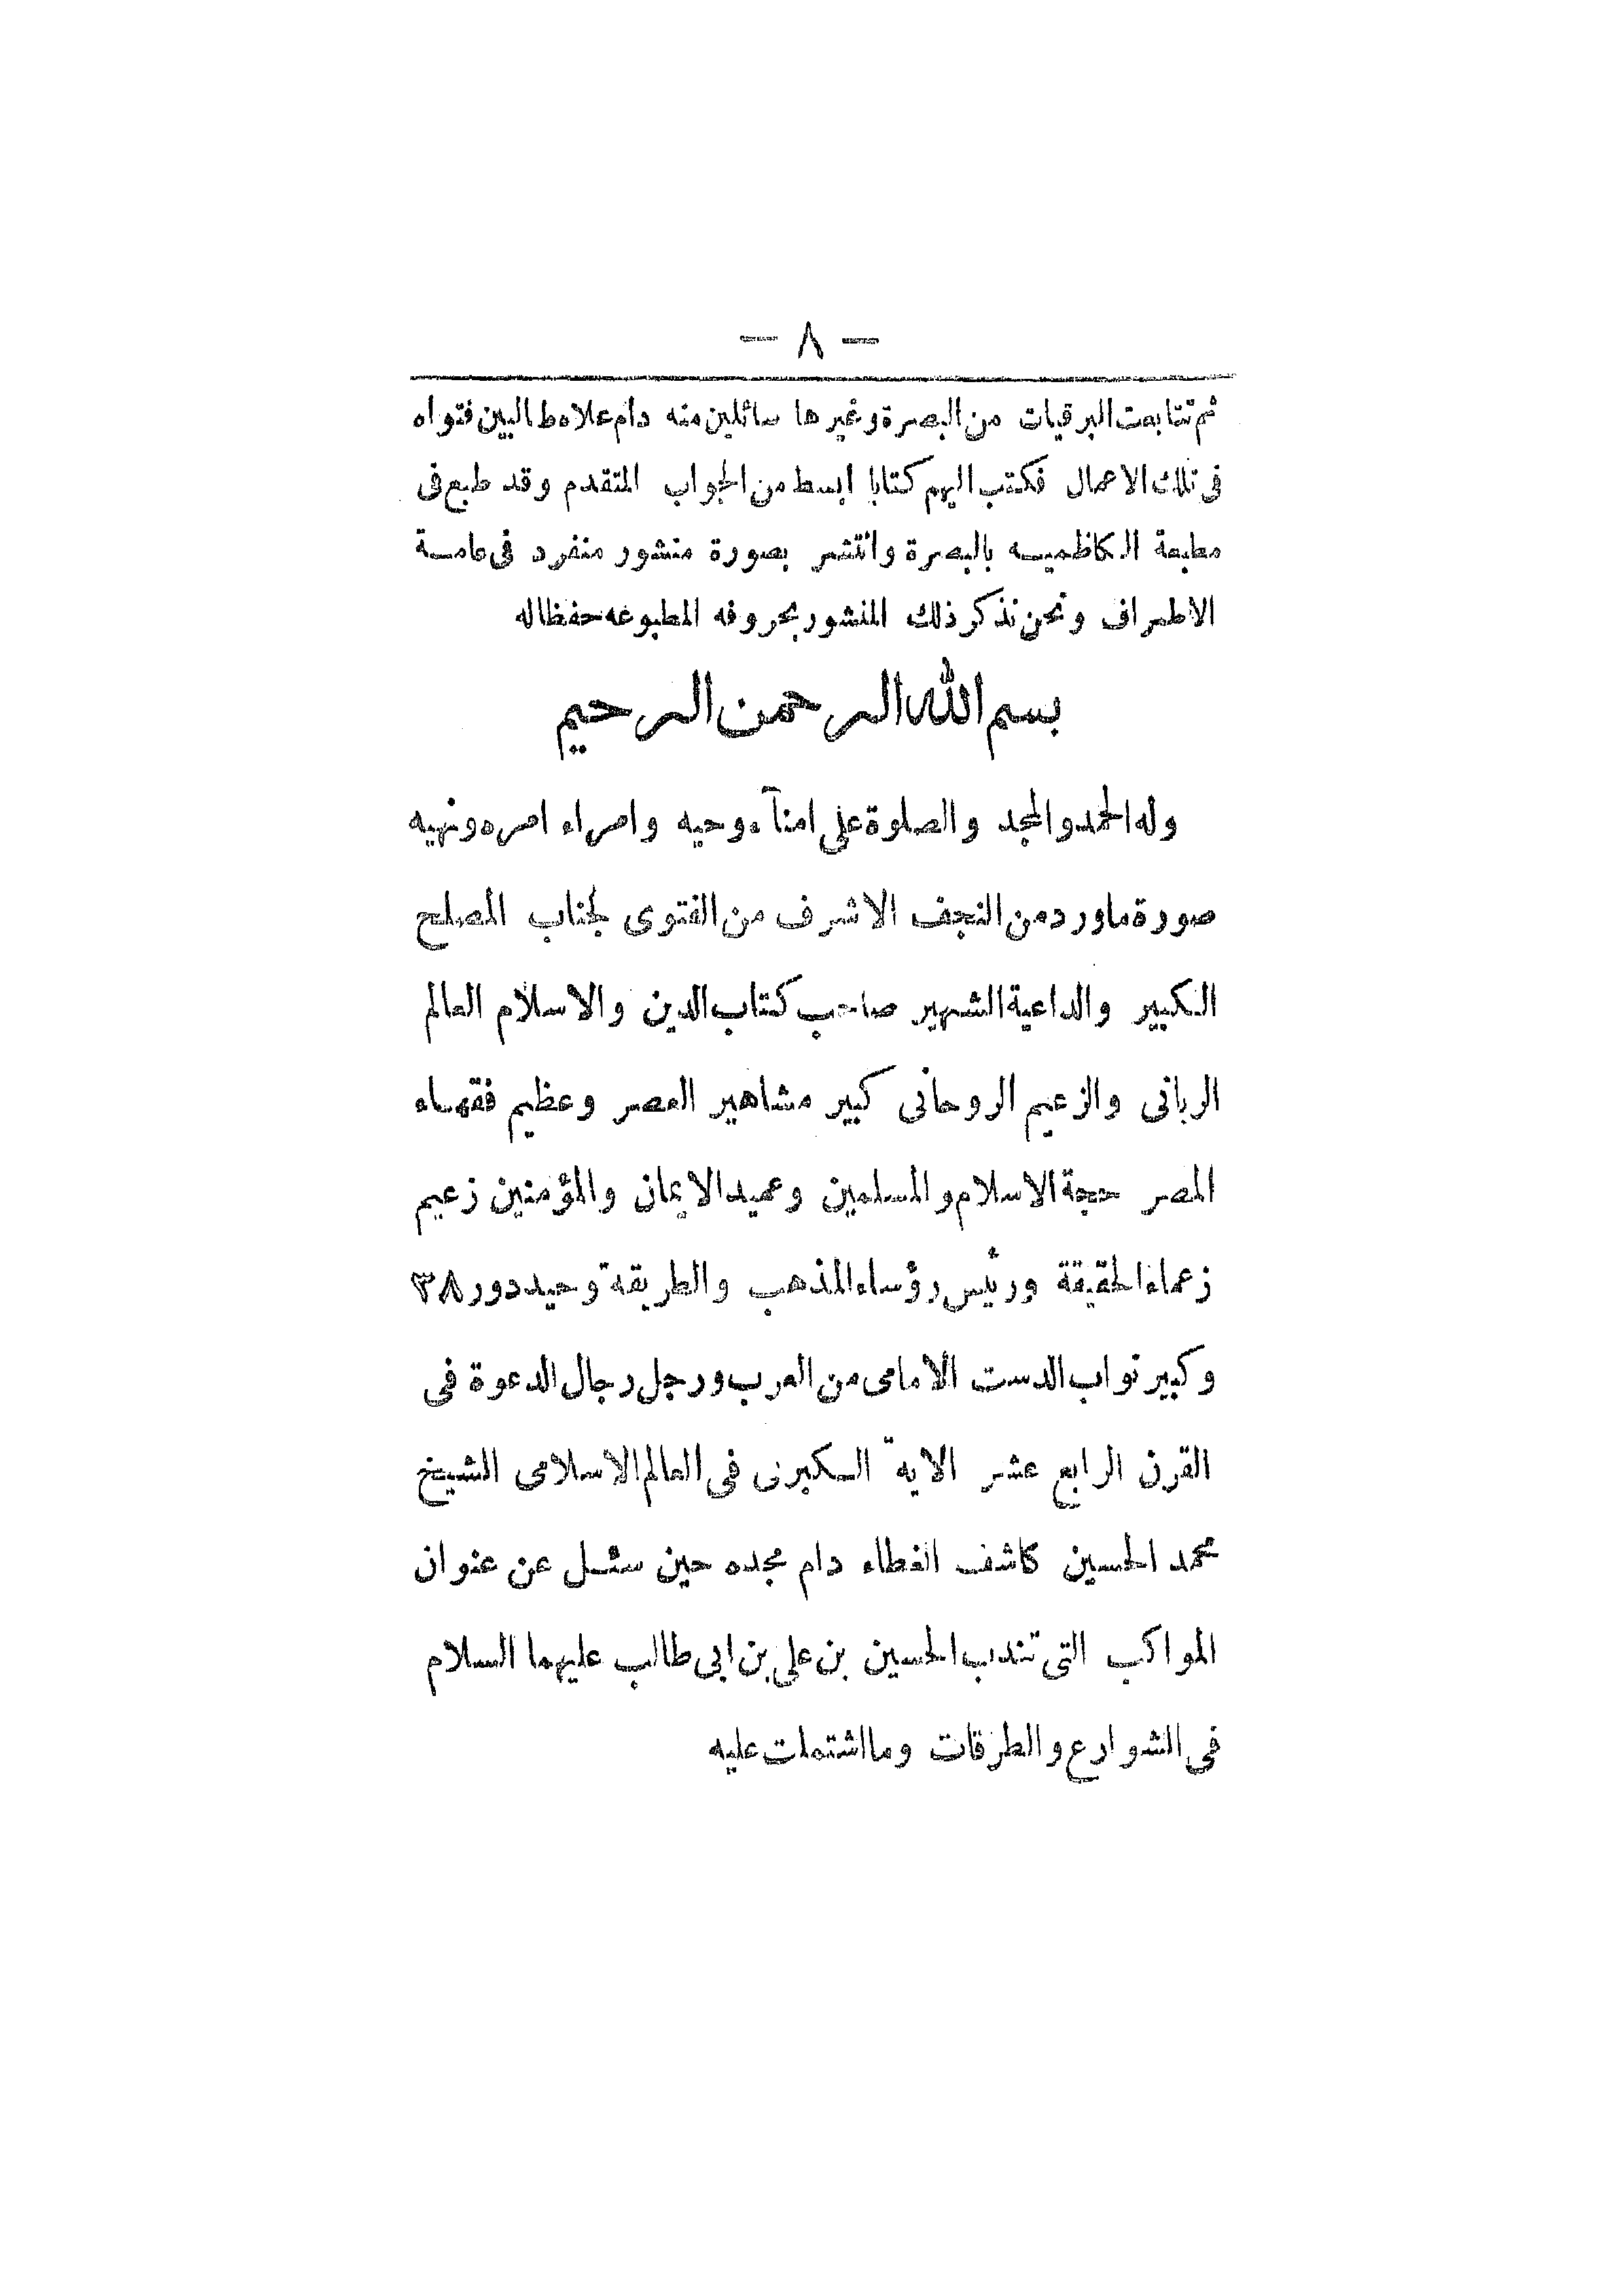 — ٨ —
ثم تتابعت البرقيات من البصرة وغيرها سائلين منه دام علاه طالبين فتواه
فى تلك الاعمال فكتب اليهم كتابا ابسط من الجواب المتقدم وقد طبع فى
مطبعة الكاظميه بالبصرة وانتشر بصورة منشور منفرد فى عامـة
الاطراف ونحن نذكر ذلك المنشور بحروفه المطبوعه حفظا له
بسم الله الرحمن الرحيم
وله الحمد والمجد والصلوة على امنآء وحيه وامراء امره ونهيه
صورة ماورد من النجف الاشرف من الفتوى لجناب المصلح
الكبير والداعية الشهير صاحب كتاب الدين والاسلام العالم
الربانى والزعيم الروحانى كبير مشاهير العصر وعظيم فقهاء
المصر حجة الاسلام والمسلمين وعميد الايمان والمؤمنين زعيم
زعماء الحقيقة ورئيس رؤساء المذهب والطريقة وحيد دور ٣٨
وكبير نواب الدست الامامى من العرب ورجل رجال الدعوة فى
القرن الرابع عشر الاية الكبرى فى العالم الاسلامى الشيخ
محمد الحسين كاشف الغطاء دام مجده حين سئل عن عنوان
المواكب التى تندب الحسين بن على بن ابى طالب عليهما السلام
فى الشوارع والطرقات وما اشتملت عليه